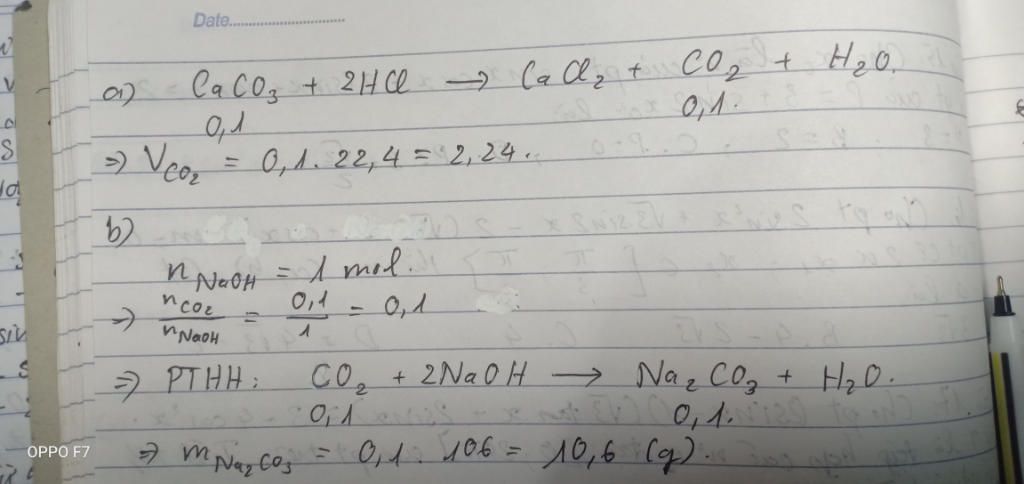 Date....................
a) CaCO₃ + 2HCl → CaCl₂ + CO₂ + H₂O.
0,1 0,1.
=> V_CO₂ = 0,1. 22,4 = 2,24.
b)
n_NaOH = 1 mol.
=> n_CO₂ / n_NaOH = 0,1 / 1 = 0,1
=> PTHH: CO₂ + 2NaOH → Na₂CO₃ + H₂O.
0,1 0,1.
=> m_Na₂CO₃ = 0,1. 106 = 10,6 (g).
OPPO F7